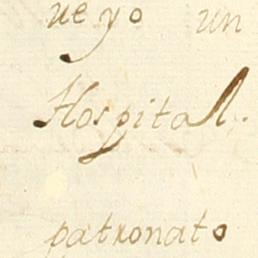 ueyo un
Hospital.
patronato